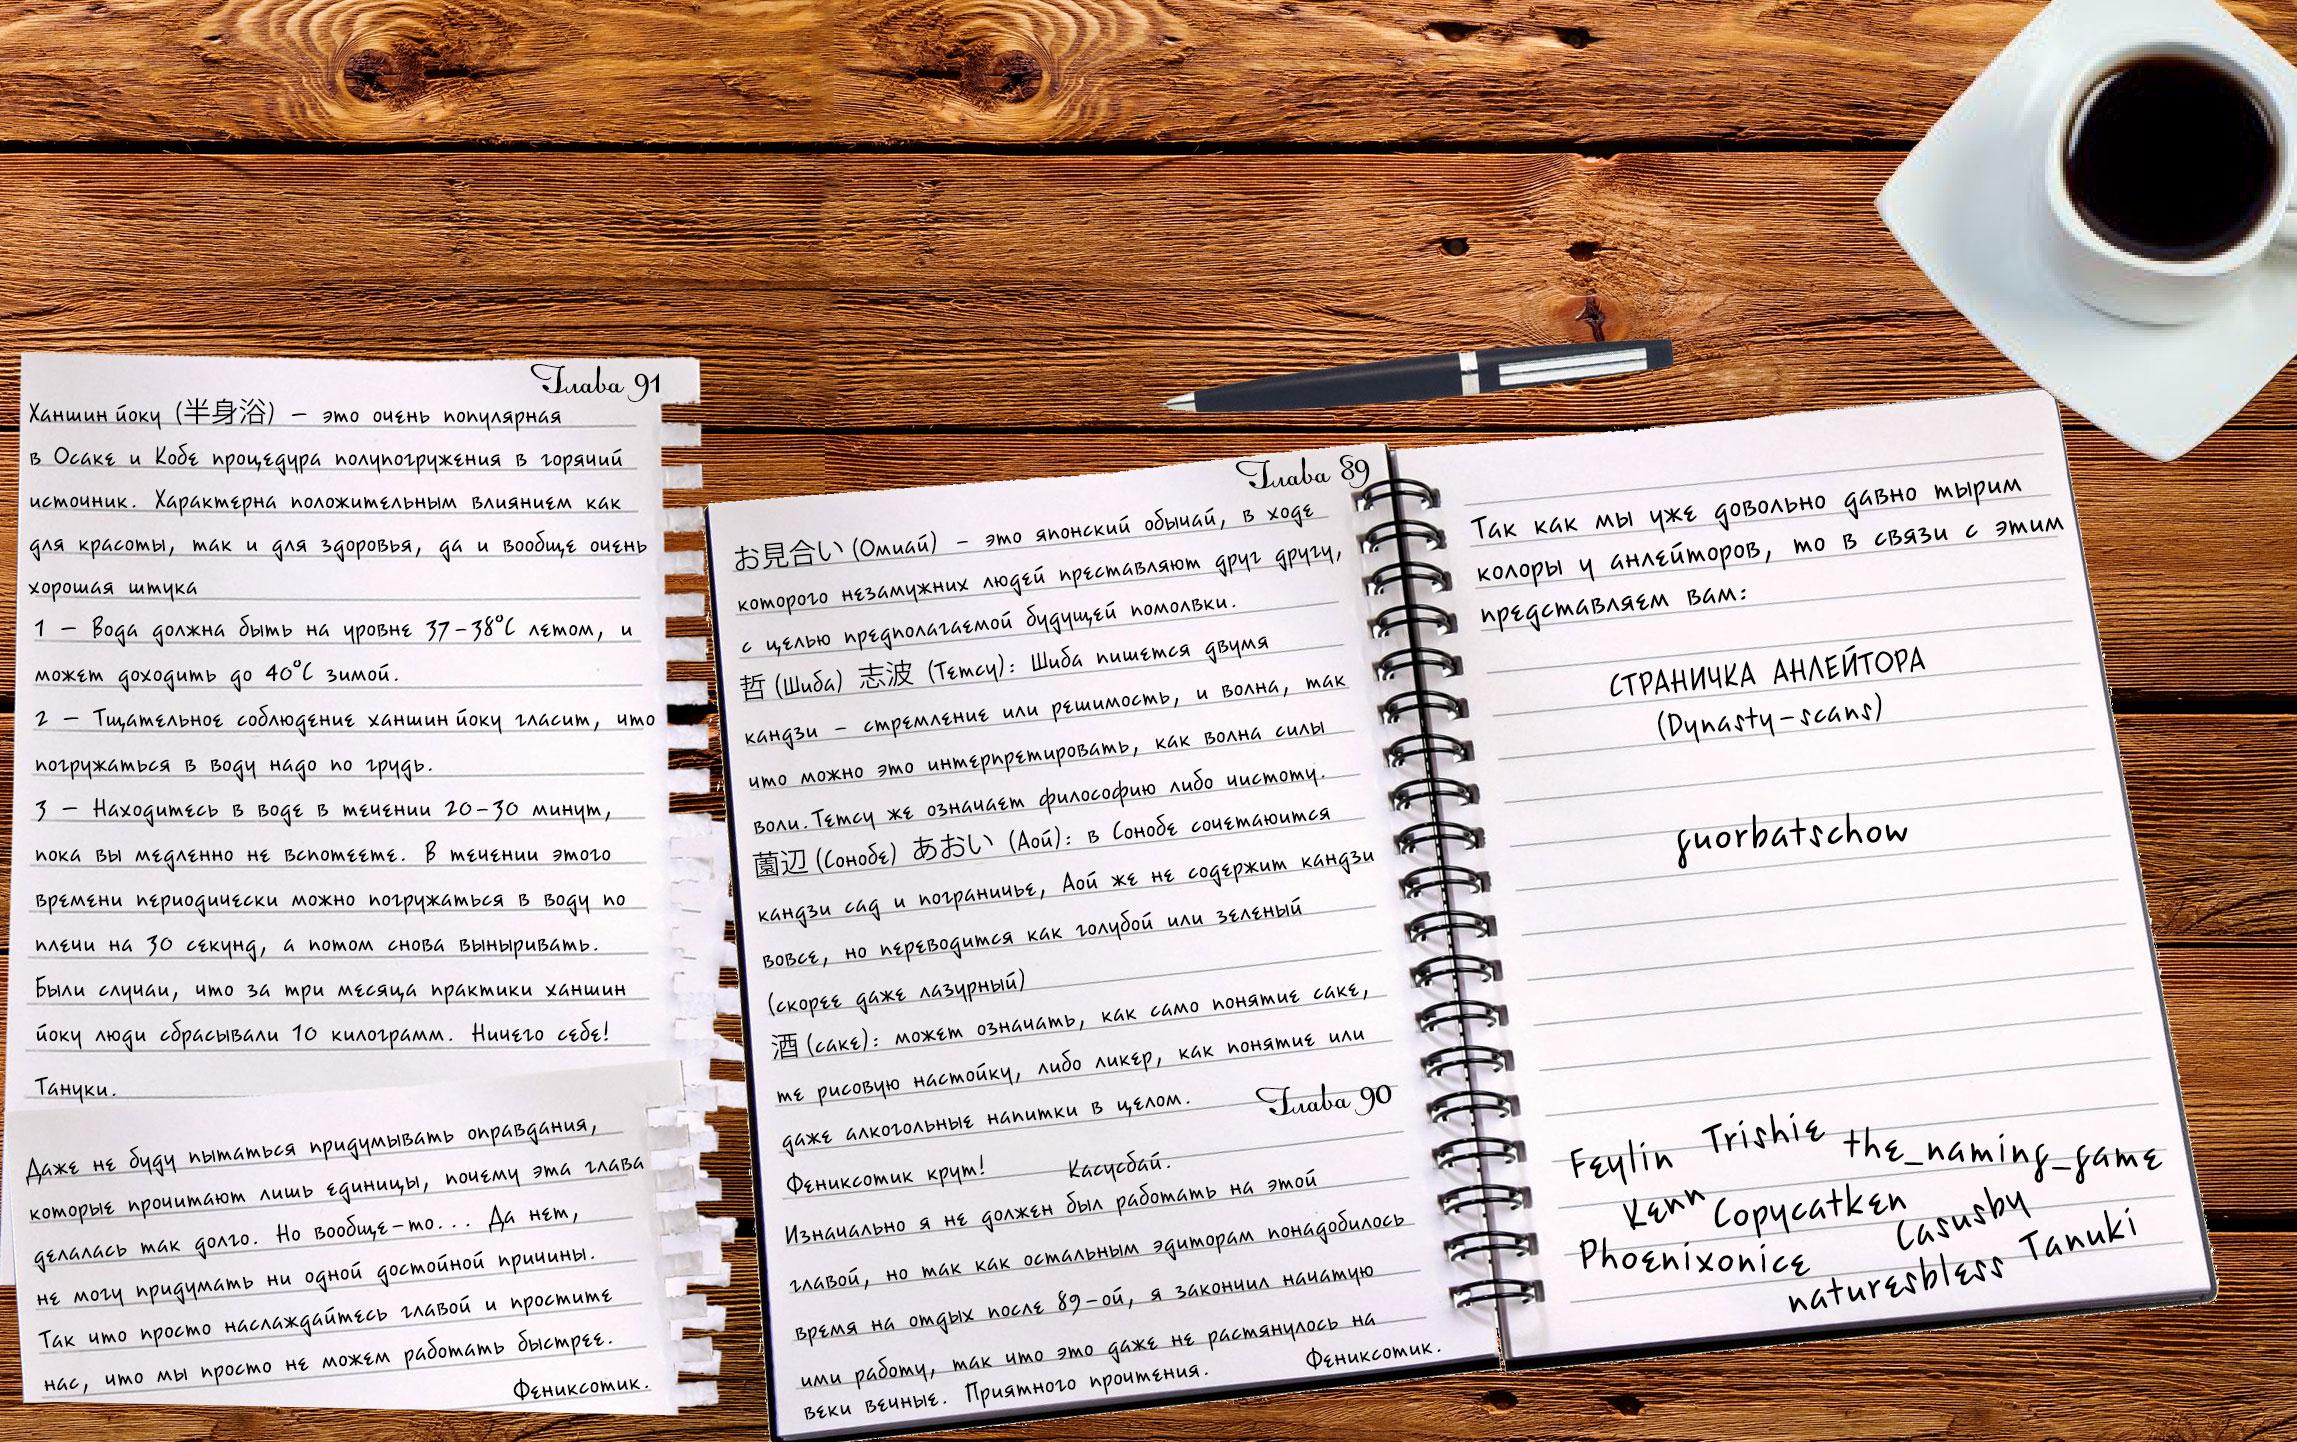 Глава 91
Ханшин йоку (半身浴) – это очень популярная
в Осаке и Кобе процедура полупогружения в горячий
источник. Характерна положительным влиянием как
для красоты, так и для здоровья, да и вообще очень
хорошая штука
1 – Вода должна быть на уровне 37-38°C летом, и
может доходить до 40°C зимой.
2 – Тщательное соблюдение ханшин йоку гласит, что
погружаться в воду надо по грудь.
3 – Находитесь в воде в течении 20-30 минут,
пока вы медленно не вспотеете. В течении этого
времени периодически можно погружаться в воду по
плечи на 30 секунд, а потом снова выныривать.
Были случаи, что за три месяца практики ханшин
йоку люди сбрасывали 10 килограмм. Ничего себе!
Тануки.
Даже не буду пытаться придумывать оправдания,
которые прочитают лишь единицы, почему эта глава
делалась так долго. Но вообще-то... Да нет,
не могу придумать ни одной достойной причины.
Так что просто наслаждайтесь главой и простите
нас, что мы просто не можем работать быстрее.
Фениксотик.
Глава 89
お見合い (Омиай) – это японский обычай, в ходе
которого незамужних людей преставляют друг другу,
с целью предполагаемой будущей помолвки.
哲 (Шиба) 志波 (Тетсу): Шиба пишется двумя
кандзи – стремление или решимость, и волна, так
что можно это интерпретировать, как волна силы
воли. Тетсу же означает философию либо чистоту.
薗辺 (Сонобе) あおい (Аой): в Сонобе сочетаются
кандзи сад и пограничье, Аой же не содержит кандзи
вовсе, но переводится как голубой или зеленый
(скорее даже лазурный)
酒 (саке): может означать, как само понятие саке,
те рисовую настойку, либо ликер, как понятие или
даже алкогольные напитки в целом.
Глава 90
Фениксотик крут! Касусбай.
Изначально я не должен был работать на этой
главой, но так как остальным эдиторам понадобилось
время на отдых после 89-ой, я закончил начатую
ими работу, так что это даже не растянулось на
веки вечные. Приятного прочтения.
Фениксотик.
Так как мы уже довольно давно тырим
колоры у анлейторов, то в связи с этим
представляем вам:
СТРАНИЧКА АНЛЕЙТОРА
(Dynasty-scans)
guorbatschow
Feylin Trishie the_naming_game
Kenn Copycatken Casusby
Phoenixonice naturesbless Tanuki